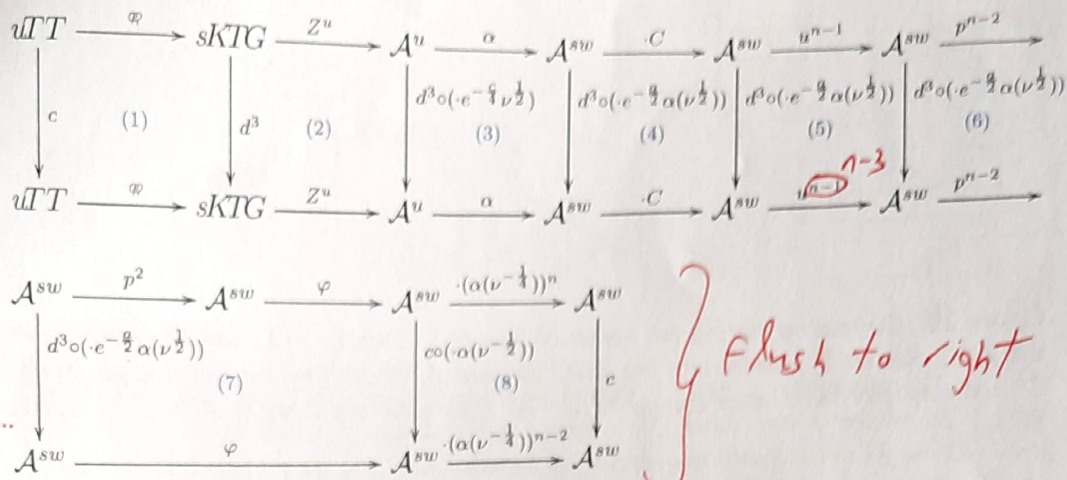 uTT φ sKTG Zᵘ 𝒜ᵘ α 𝒜ˢʷ ·C 𝒜ˢʷ uⁿ⁻¹ 𝒜ˢʷ pⁿ⁻²
c (1) d³ (2) d³∘(·e^{-c/4}ν^{1/2}) (3) d³∘(·e^{-a/2}α(ν^{1/2})) (4) d³∘(·e^{-a/2}α(ν^{1/2})) (5) d³∘(·e^{-a/2}α(ν^{1/2})) (6)
n-3
uTT φ sKTG Zᵘ 𝒜ᵘ α 𝒜ˢʷ ·C 𝒜ˢʷ uⁿ⁻¹ 𝒜ˢʷ pⁿ⁻²
𝒜ˢʷ p² 𝒜ˢʷ φ 𝒜ˢʷ ·(α(ν^{-1/4}))ⁿ 𝒜ˢʷ
d³∘(·e^{-a/2}α(ν^{1/2})) (7) c∘(·α(ν^{-1/2})) (8) c
Flush to right
𝒜ˢʷ φ 𝒜ˢʷ ·(α(ν^{-1/4}))ⁿ⁻² 𝒜ˢʷ